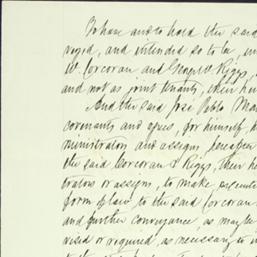 To have and to hold the said
veyed, and intended so to be, un
W. Corcoran and George W. Riggs,
and not as joint tenants, their hei
And the said José Pablo Mon
covenants and agrees, for himself, h
ministrators and assigns, hereafter
the said Corcoran & Riggs, their he
trators or assigns, to make, execute
form of law to the said Corcoran
and further conveyance, as may b
vised or required, as necessary to